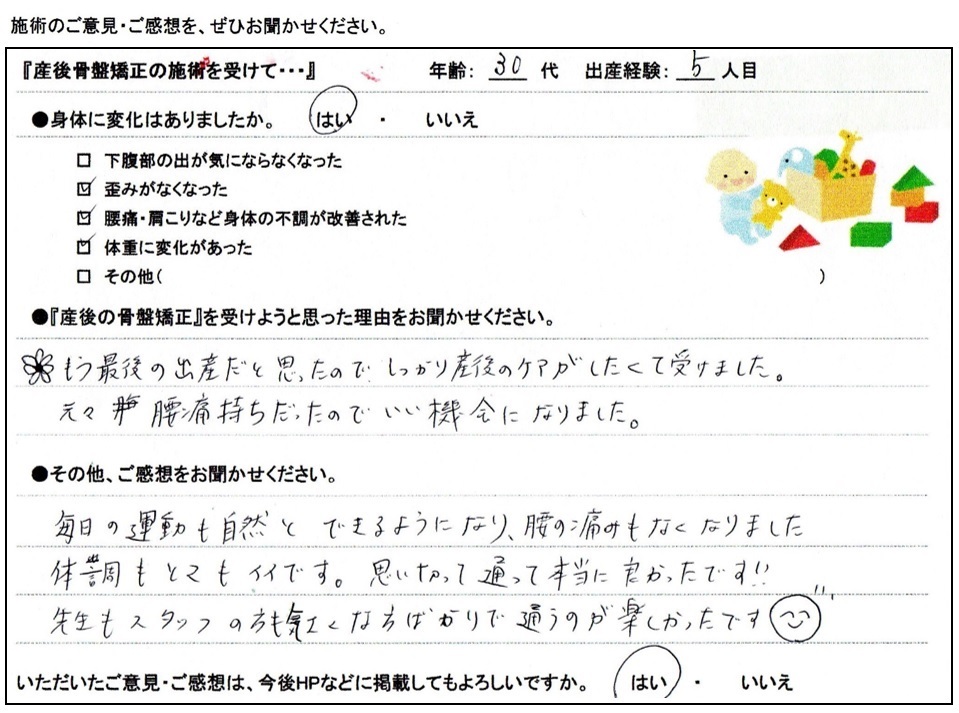 施術のご意見・ご感想を、ぜひお聞かせください。
『産後骨盤矯正の施術を受けて・・・』 年齢: 30 代 出産経験: 5 人目
●身体に変化はありましたか。 はい ・ いいえ
□ 下腹部の出が気にならなくなった
☑ 歪みがなくなった
☑ 腰痛・肩こりなど身体の不調が改善された
☑ 体重に変化があった
□ その他( )
●『産後の骨盤矯正』を受けようと思った理由をお聞かせください。
もう最後の出産だと思ったので しっかり産後のケアがしたくて受けました。
元々 腰痛持ちだったので いい機会になりました。
●その他、ご感想をお聞かせください。
毎日の運動も自然と できるようになり、腰の痛みもなくなりました
体調もとてもイイです。思い切って通って本当に良かったです!!
先生もスタッフの方も気さくな方ばかりで通うのが楽しかったです
いただいたご意見・ご感想は、今後HPなどに掲載してもよろしいですか。 はい ・ いいえ